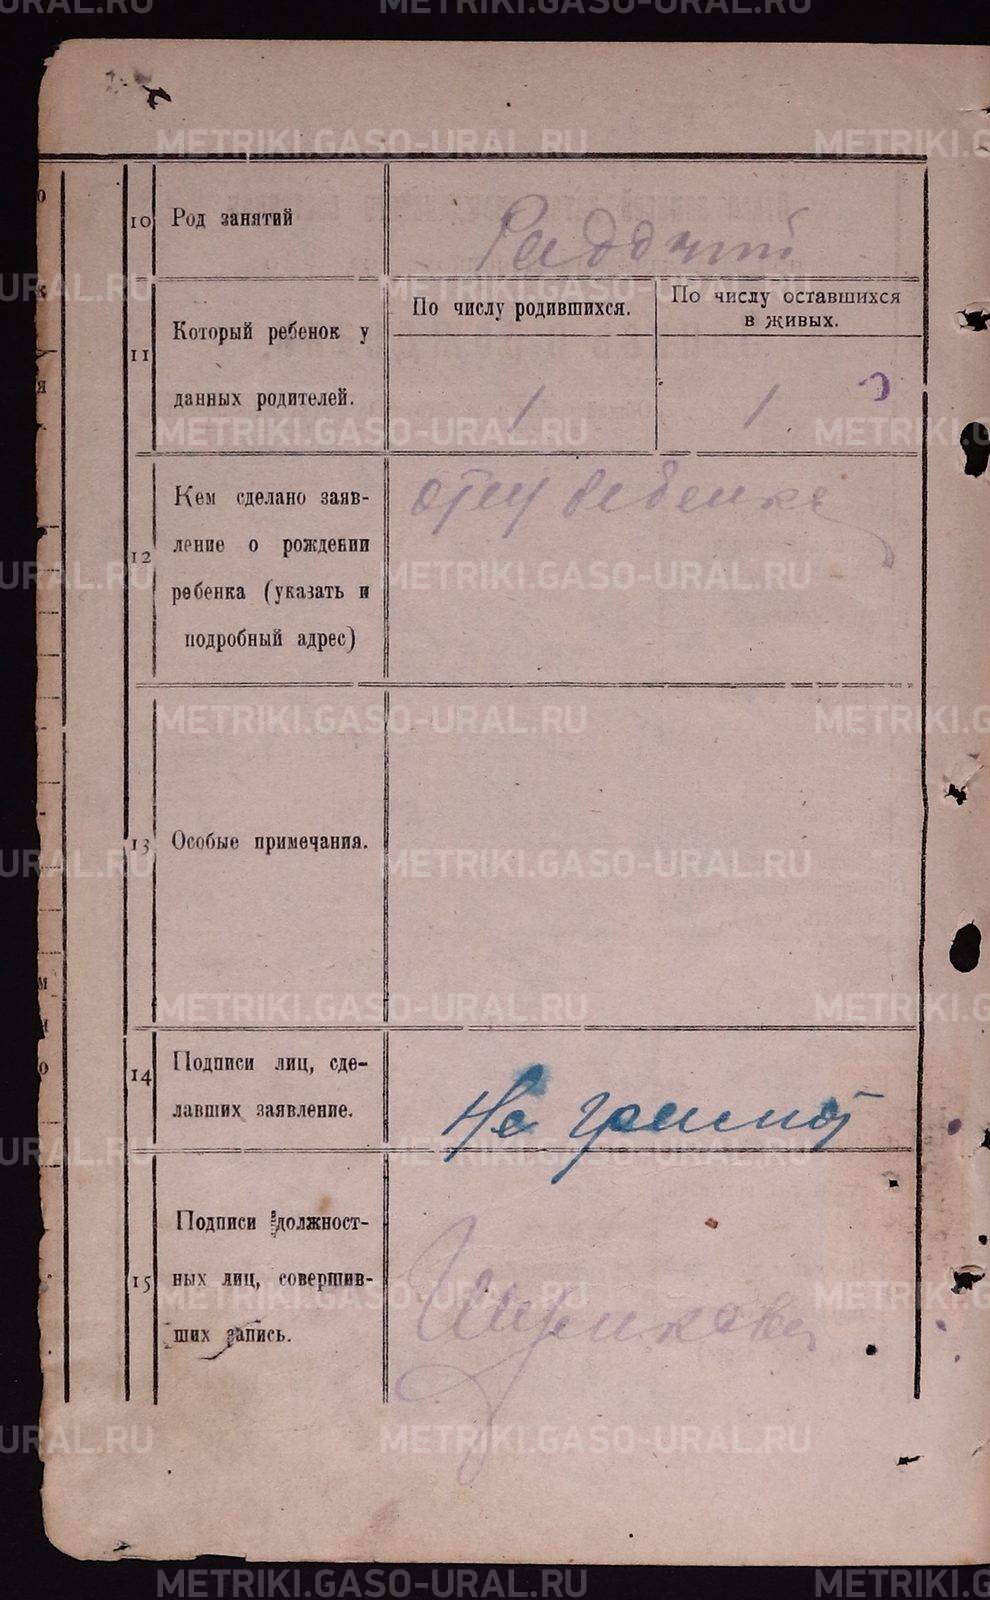 METRIKI.GASO-URAL.RU
10 Род занятий
11 Который ребенок у
данных родителей.
По числу родившихся.
По числу оставшихся
в живых.
1
1
12 Кем сделано заяв-
ление о рождении
ребенка (указать и
подробный адрес)
отец ребенка
13 Особые примечания.
14 Подписи лиц, сде-
лавших заявление.
Не грамот
15 Подписи должност-
ных лиц, совершив-
ших запись.